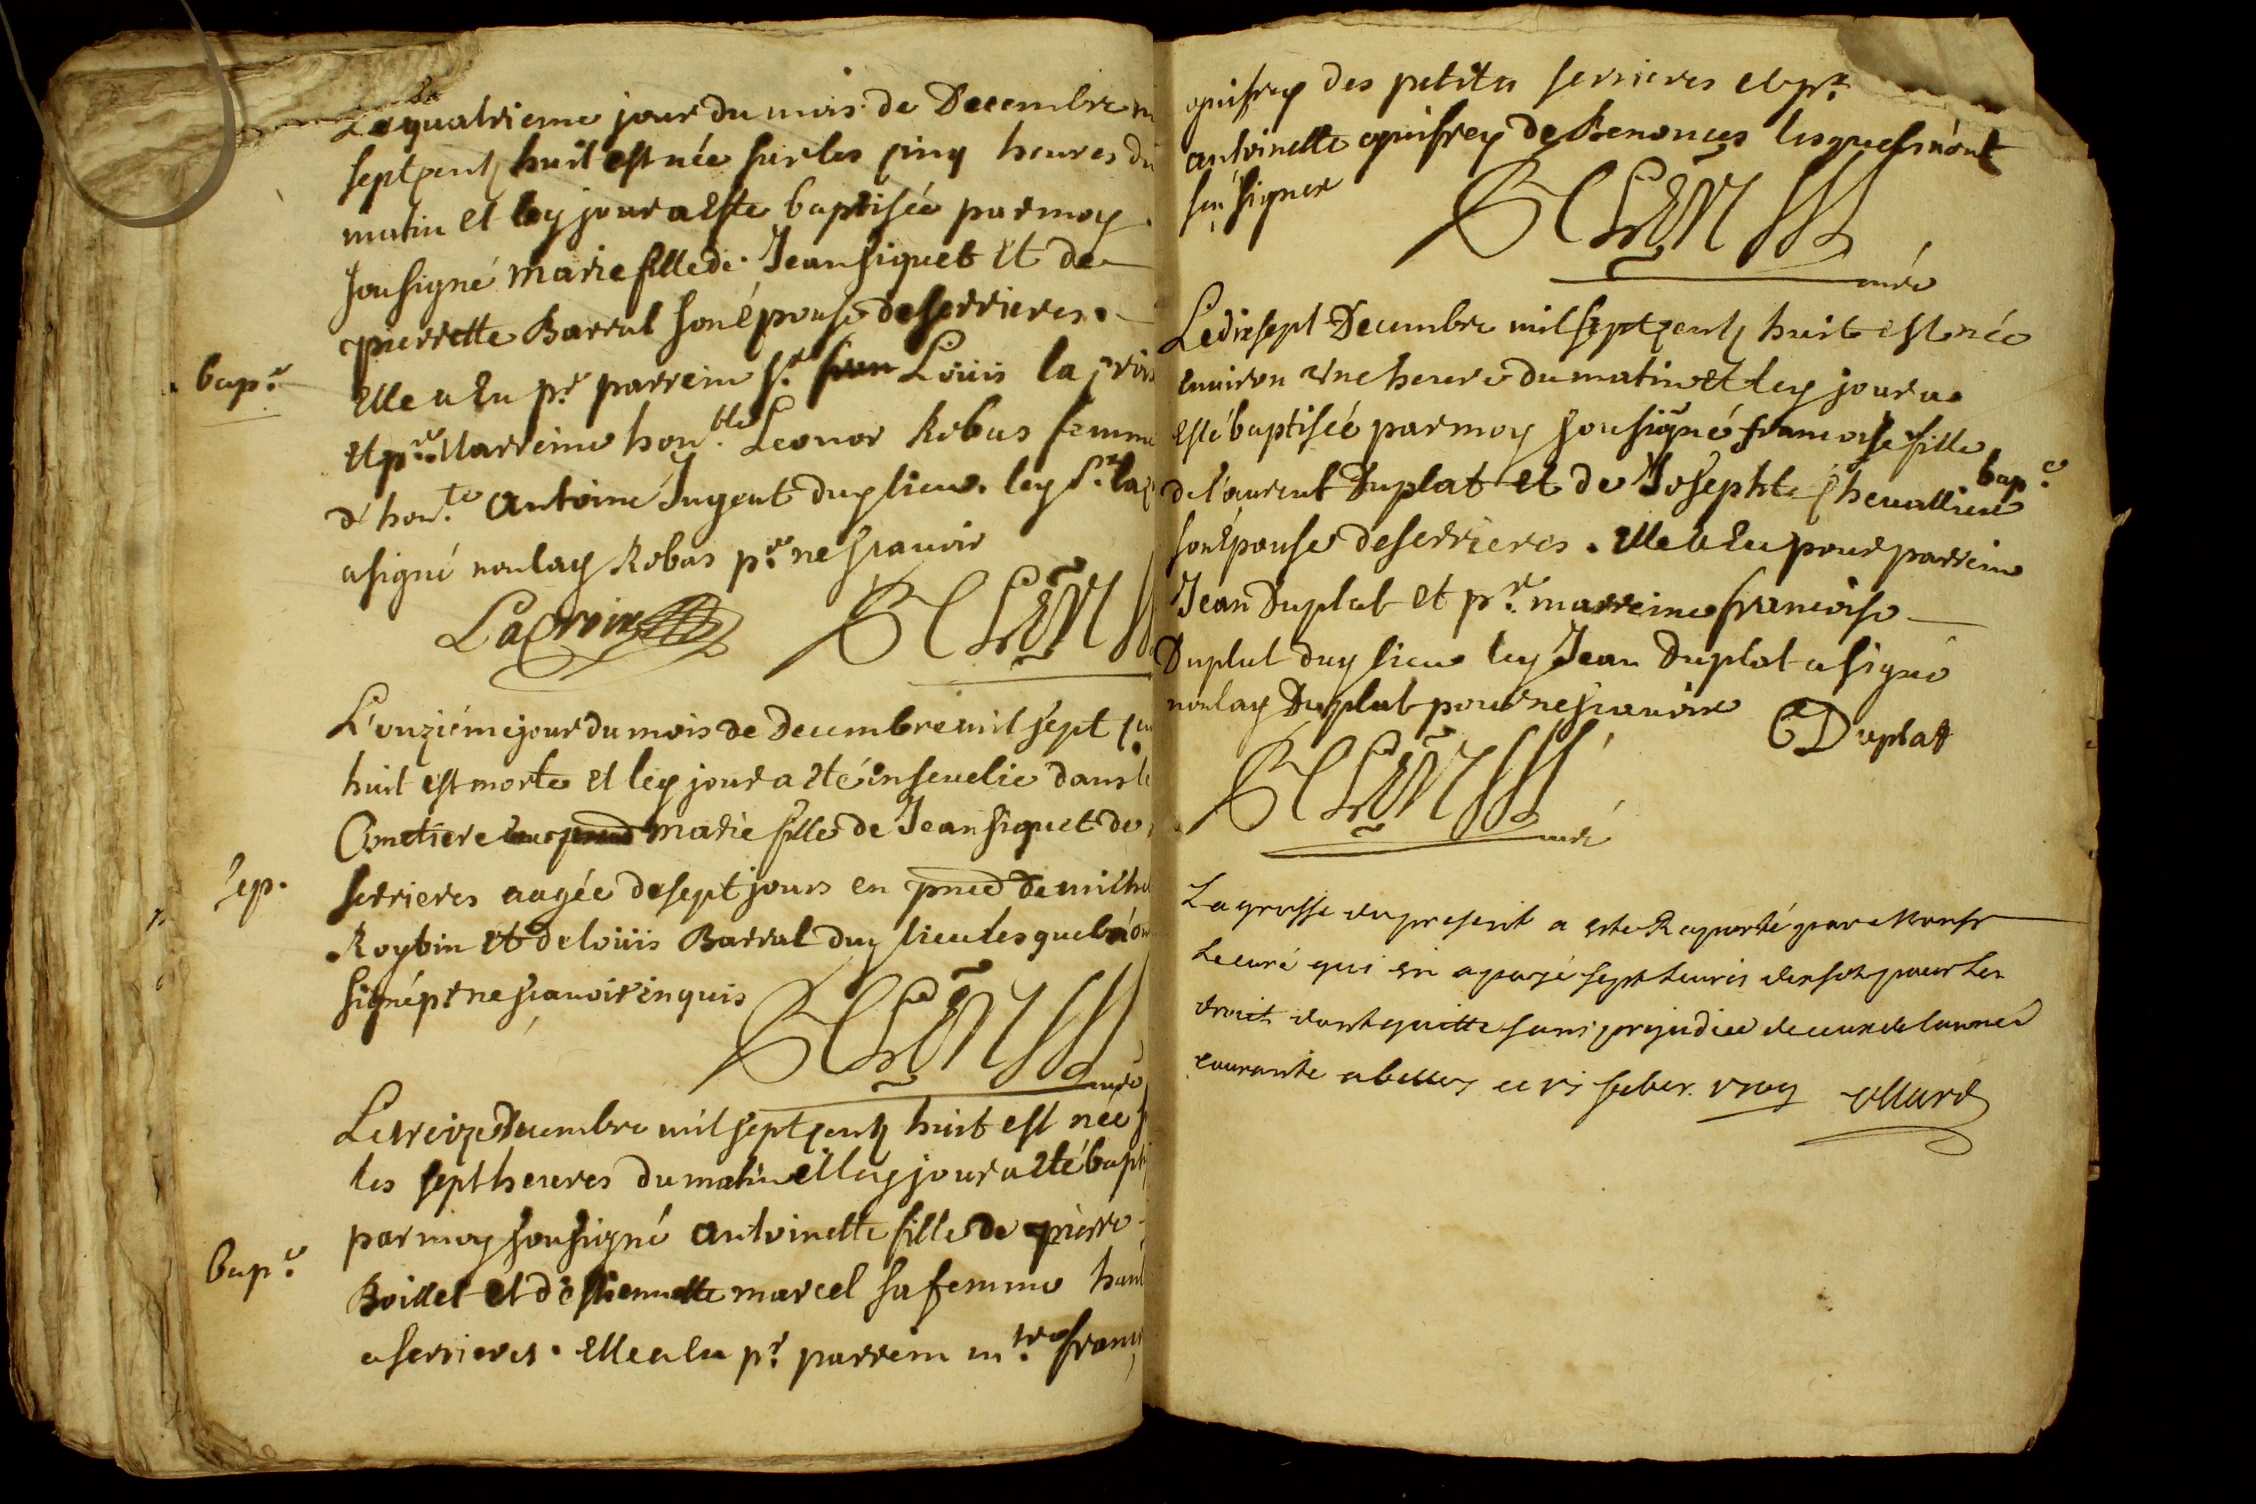 Le quatrieme jour du mois de Decembre
sept centz huit est née sur les cinq heures du
matin et ley jour a esté baptisée par moy
sousigné marie fille de Jean siquet et de
pierrette Barral son épouse de serrieres.
bap.e
Elle a eu pr. parrein sr. Loüis la croix
et pr. Marreine hon.ble Leonor Robas femme
d'hon.te antoine Jugent duy lieu. ley sr. la
a signé non lay Robas pr. ne scavoir
Lacroix
L'onziéme jour du mois de decembre mil sept
huit est morte et ley jour a eté ensevelie dans le
Cimetiere marie fille de Jean siquet de
sep.
serrieres aagée de sept jours en pnce de
Roybin et de loüis Barral duy lieu lesquels n'ont
signé pr ne scavoir enquis
curé
Le treize decembre mil sept centz huit est née
les sept heures du matin et ley jour a eté bapt
par moy sousigné antoinette fille de pierre
bap.e
Boillet et d'estiennette marcel sa femme
a serrieres. Elle a eu pr. parrein m.tre franc
des petites serrieres et pr.
antoinette de lesquels n'ont
sceu signer
curé
Le dixsept Decembre mil sept centz huit est née
environ une heure du matin et ley jour a
esté baptisée par moy sousigné francoise fille
bap.e
de laurent Duplat et de Josephte chevalliere
son épouse de serrieres. elle a eu pour parrein
Jean Duplat et pr. marreine francoise
Duplat duy lieu ley Jean Duplat a signé
non lay Duplat pour ne scavoir
Duplat
curé
La grosse du present a esté Raporté par Monsr
Le curé qui en a payé sept livres dix sols pour les
droits dont quitte sans prejudice de ceux de lannee
courante a belley ce vi feber. 1709